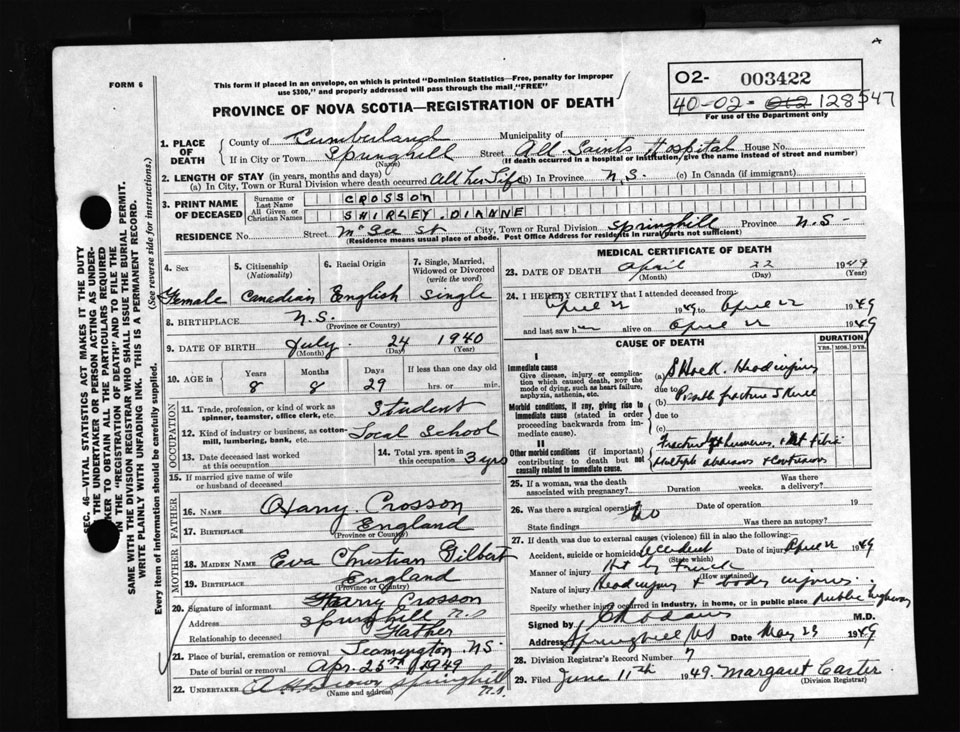 A
FORM 6
This form if placed in an envelope, on which is printed "Dominion Statistics—Free, penalty for improper
use $300," and properly addressed will pass through the mail, "FREE"
PROVINCE OF NOVA SCOTIA—REGISTRATION OF DEATH
O2- 003422
40-02- 012 128547
For use of the Department only
SEC. 46—VITAL STATISTICS ACT MAKES IT THE DUTY
OF THE UNDERTAKER OR PERSON ACTING AS UNDER-
TAKER TO OBTAIN ALL THE PARTICULARS REQUIRED
IN THE "REGISTRATION OF DEATH" AND TO FILE THE
SAME WITH THE DIVISION REGISTRAR WHO SHALL ISSUE THE BURIAL PERMIT.
WRITE PLAINLY WITH UNFADING INK. THIS IS A PERMANENT RECORD.
Every item of information should be carefully supplied. (See reverse side for instructions.)
1. PLACE OF DEATH County of Cumberland Municipality of
If in City or Town Springhill Street All Saints Hospital House No.
(Name) (If death occurred in a hospital or institution, give the name instead of street and number)
2. LENGTH OF STAY (in years, months and days)
(a) In City, Town or Rural Division where death occurred All her Life (b) In Province N.S. (c) In Canada (if immigrant)
3. PRINT NAME OF DECEASED Surname or Last Name CROSSON
All Given or Christian Names SHIRLEY. DIANNE
RESIDENCE No. Street McGee St City, Town or Rural Division Springhill Province N.S-
(Residence means usual place of abode. Post Office Address for residents in rural parts not sufficient)
4. Sex 5. Citizenship (Nationality) 6. Racial Origin 7. Single, Married, Widowed or Divorced (write the word)
Female Canadian English Single
8. BIRTHPLACE N.S.
(Province or Country)
9. DATE OF BIRTH July 24 1940
(Month) (Day) (Year)
10. AGE in Years Months Days If less than one day old
8 8 29 hrs. or min.
OCCUPATION
11. Trade, profession, or kind of work as spinner, teamster, office clerk, etc. Student
12. Kind of industry or business, as cotton-mill, lumbering, bank, etc. Local School
13. Date deceased last worked at this occupation 14. Total yrs. spent in this occupation 3 yrs
15. If married give name of wife or husband of deceased
FATHER
16. NAME Harry Crosson
17. BIRTHPLACE England
(Province or Country)
MOTHER
18. MAIDEN NAME Eva Christian Gilbert
19. BIRTHPLACE England
(Province or Country)
20. Signature of informant Harry Crosson
Address Springhill N.S
Relationship to deceased Father
21. Place of burial, cremation or removal Leamington, NS.
Date of burial or removal Apr. 25th 1949
22. UNDERTAKER A H Brown Springhill N.S.
(Name and address)
MEDICAL CERTIFICATE OF DEATH
23. DATE OF DEATH April 22 1949
(Month) (Day) (Year)
24. I HEREBY CERTIFY that I attended deceased from
April 22 1949 to April 22 1949
and last saw her alive on April 22 1949
CAUSE OF DEATH DURATION
YRS. MOS. DYS.
I
Immediate cause
Give disease, injury or complication which caused death, NOT the mode of dying, such as heart failure, asphyxia, asthenia, etc.
(a) Shock. Head injury
due to
Morbid conditions, if any, giving rise to immediate cause (stated in order proceeding backwards from immediate cause).
(b) fracture Skull
due to
(c)
II
Other morbid conditions (if important) contributing to death but not causally related to immediate cause.
Fracture humerus,
Multiple abrasions & contusions
25. If a woman, was the death associated with pregnancy? Duration weeks. Was there a delivery?
26. Was there a surgical operation? No Date of operation 19
State findings Was there an autopsy?
27. If death was due to external causes (violence) fill in also the following:
Accident, suicide or homicide? Accident Date of injury April 22 1949
(State which)
Manner of injury Hit by truck
(How sustained)
Nature of injury Head injury & body injuries.
Specify whether injury occurred in industry, in home, or in public place public highway
Signed by M.D.
Address Springhill NS Date May 29 1949
28. Division Registrar's Record Number 7
29. Filed June 11th 1949. Margaret Carter
(Division Registrar)